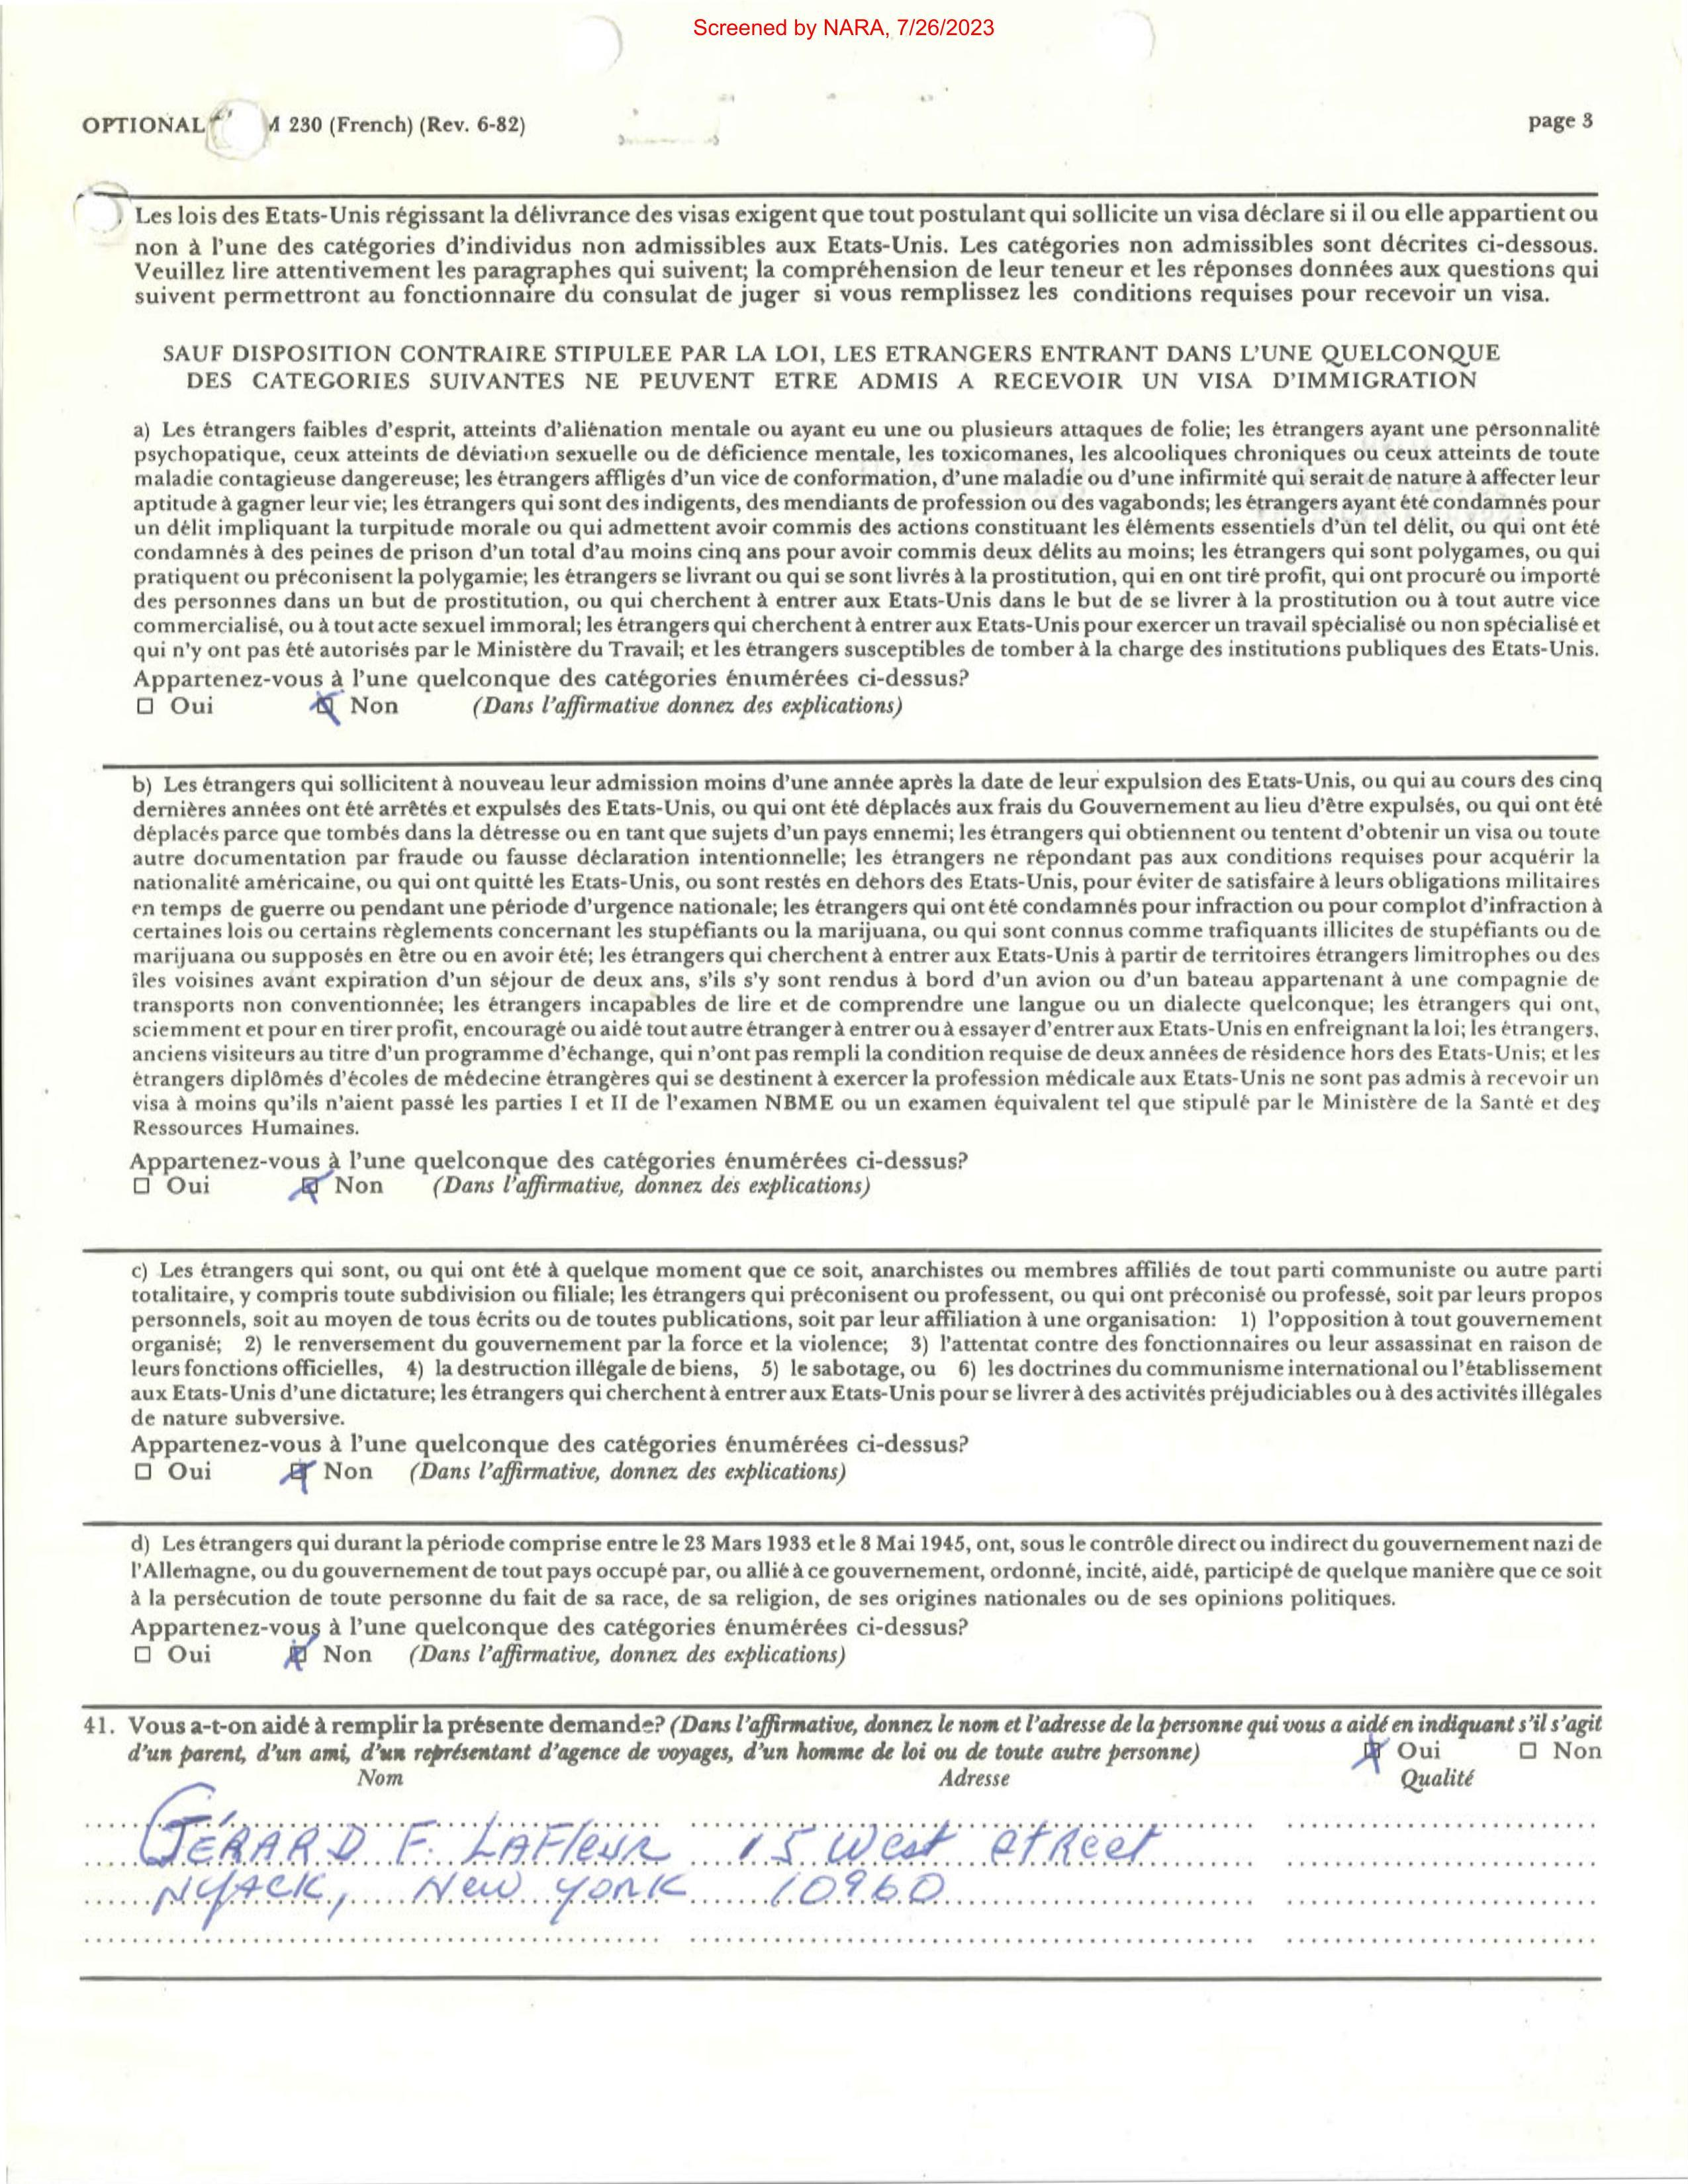 Screened by NARA, 7/26/2023
OPTIONAL M 230 (French) (Rev. 6-82) page 3
Les lois des Etats-Unis régissant la délivrance des visas exigent que tout postulant qui sollicite un visa déclare si il ou elle appartient ou
non à l'une des catégories d'individus non admissibles aux Etats-Unis. Les catégories non admissibles sont décrites ci-dessous.
Veuillez lire attentivement les paragraphes qui suivent; la compréhension de leur teneur et les réponses données aux questions qui
suivent permettront au fonctionnaire du consulat de juger si vous remplissez les conditions requises pour recevoir un visa.
SAUF DISPOSITION CONTRAIRE STIPULEE PAR LA LOI, LES ETRANGERS ENTRANT DANS L'UNE QUELCONQUE
DES CATEGORIES SUIVANTES NE PEUVENT ETRE ADMIS A RECEVOIR UN VISA D'IMMIGRATION
a) Les étrangers faibles d'esprit, atteints d'aliénation mentale ou ayant eu une ou plusieurs attaques de folie; les étrangers ayant une personnalité
psychopatique, ceux atteints de déviation sexuelle ou de déficience mentale, les toxicomanes, les alcooliques chroniques ou ceux atteints de toute
maladie contagieuse dangereuse; les étrangers affligés d'un vice de conformation, d'une maladie ou d'une infirmité qui serait de nature à affecter leur
aptitude à gagner leur vie; les étrangers qui sont des indigents, des mendiants de profession ou des vagabonds; les étrangers ayant été condamnés pour
un délit impliquant la turpitude morale ou qui admettent avoir commis des actions constituant les éléments essentiels d'un tel délit, ou qui ont été
condamnés à des peines de prison d'un total d'au moins cinq ans pour avoir commis deux délits au moins; les étrangers qui sont polygames, ou qui
pratiquent ou préconisent la polygamie; les étrangers se livrant ou qui se sont livrés à la prostitution, qui en ont tiré profit, qui ont procuré ou importé
des personnes dans un but de prostitution, ou qui cherchent à entrer aux Etats-Unis dans le but de se livrer à la prostitution ou à tout autre vice
commercialisé, ou à tout acte sexuel immoral; les étrangers qui cherchent à entrer aux Etats-Unis pour exercer un travail spécialisé ou non spécialisé et
qui n'y ont pas été autorisés par le Ministère du Travail; et les étrangers susceptibles de tomber à la charge des institutions publiques des Etats-Unis.
Appartenez-vous à l'une quelconque des catégories énumérées ci-dessus?
☐ Oui ☒ Non (Dans l'affirmative donnez des explications)
b) Les étrangers qui sollicitent à nouveau leur admission moins d'une année après la date de leur expulsion des Etats-Unis, ou qui au cours des cinq
dernières années ont été arrêtés et expulsés des Etats-Unis, ou qui ont été déplacés aux frais du Gouvernement au lieu d'être expulsés, ou qui ont été
déplacés parce que tombés dans la détresse ou en tant que sujets d'un pays ennemi; les étrangers qui obtiennent ou tentent d'obtenir un visa ou toute
autre documentation par fraude ou fausse déclaration intentionnelle; les étrangers ne répondant pas aux conditions requises pour acquérir la
nationalité américaine, ou qui ont quitté les Etats-Unis, ou sont restés en dehors des Etats-Unis, pour éviter de satisfaire à leurs obligations militaires
en temps de guerre ou pendant une période d'urgence nationale; les étrangers qui ont été condamnés pour infraction ou pour complot d'infraction à
certaines lois ou certains règlements concernant les stupéfiants ou la marijuana, ou qui sont connus comme trafiquants illicites de stupéfiants ou de
marijuana ou supposés en être ou en avoir été; les étrangers qui cherchent à entrer aux Etats-Unis à partir de territoires étrangers limitrophes ou des
îles voisines avant expiration d'un séjour de deux ans, s'ils s'y sont rendus à bord d'un avion ou d'un bateau appartenant à une compagnie de
transports non conventionnée; les étrangers incapables de lire et de comprendre une langue ou un dialecte quelconque; les étrangers qui ont,
sciemment et pour en tirer profit, encouragé ou aidé tout autre étranger à entrer ou à essayer d'entrer aux Etats-Unis en enfreignant la loi; les étrangers,
anciens visiteurs au titre d'un programme d'échange, qui n'ont pas rempli la condition requise de deux années de résidence hors des Etats-Unis; et les
étrangers diplômés d'écoles de médecine étrangères qui se destinent à exercer la profession médicale aux Etats-Unis ne sont pas admis à recevoir un
visa à moins qu'ils n'aient passé les parties I et II de l'examen NBME ou un examen équivalent tel que stipulé par le Ministère de la Santé et des
Ressources Humaines.
Appartenez-vous à l'une quelconque des catégories énumérées ci-dessus?
☐ Oui ☒ Non (Dans l'affirmative, donnez des explications)
c) Les étrangers qui sont, ou qui ont été à quelque moment que ce soit, anarchistes ou membres affiliés de tout parti communiste ou autre parti
totalitaire, y compris toute subdivision ou filiale; les étrangers qui préconisent ou professent, ou qui ont préconisé ou professé, soit par leurs propos
personnels, soit au moyen de tous écrits ou de toutes publications, soit par leur affiliation à une organisation: 1) l'opposition à tout gouvernement
organisé; 2) le renversement du gouvernement par la force et la violence; 3) l'attentat contre des fonctionnaires ou leur assassinat en raison de
leurs fonctions officielles, 4) la destruction illégale de biens, 5) le sabotage, ou 6) les doctrines du communisme international ou l'établissement
aux Etats-Unis d'une dictature; les étrangers qui cherchent à entrer aux Etats-Unis pour se livrer à des activités préjudiciables ou à des activités illégales
de nature subversive.
Appartenez-vous à l'une quelconque des catégories énumérées ci-dessus?
☐ Oui ☒ Non (Dans l'affirmative, donnez des explications)
d) Les étrangers qui durant la période comprise entre le 23 Mars 1933 et le 8 Mai 1945, ont, sous le contrôle direct ou indirect du gouvernement nazi de
l'Allemagne, ou du gouvernement de tout pays occupé par, ou allié à ce gouvernement, ordonné, incité, aidé, participé de quelque manière que ce soit
à la persécution de toute personne du fait de sa race, de sa religion, de ses origines nationales ou de ses opinions politiques.
Appartenez-vous à l'une quelconque des catégories énumérées ci-dessus?
☐ Oui ☒ Non (Dans l'affirmative, donnez des explications)
41. Vous a-t-on aidé à remplir la présente demande? (Dans l'affirmative, donnez le nom et l'adresse de la personne qui vous a aidé en indiquant s'il s'agit
d'un parent, d'un ami, d'un représentant d'agence de voyages, d'un homme de loi ou de toute autre personne) ☒ Oui ☐ Non
Nom Adresse Qualité
GÉRARD F. LAFleuR 15 West StReet
NyACK, New yoRK 10960